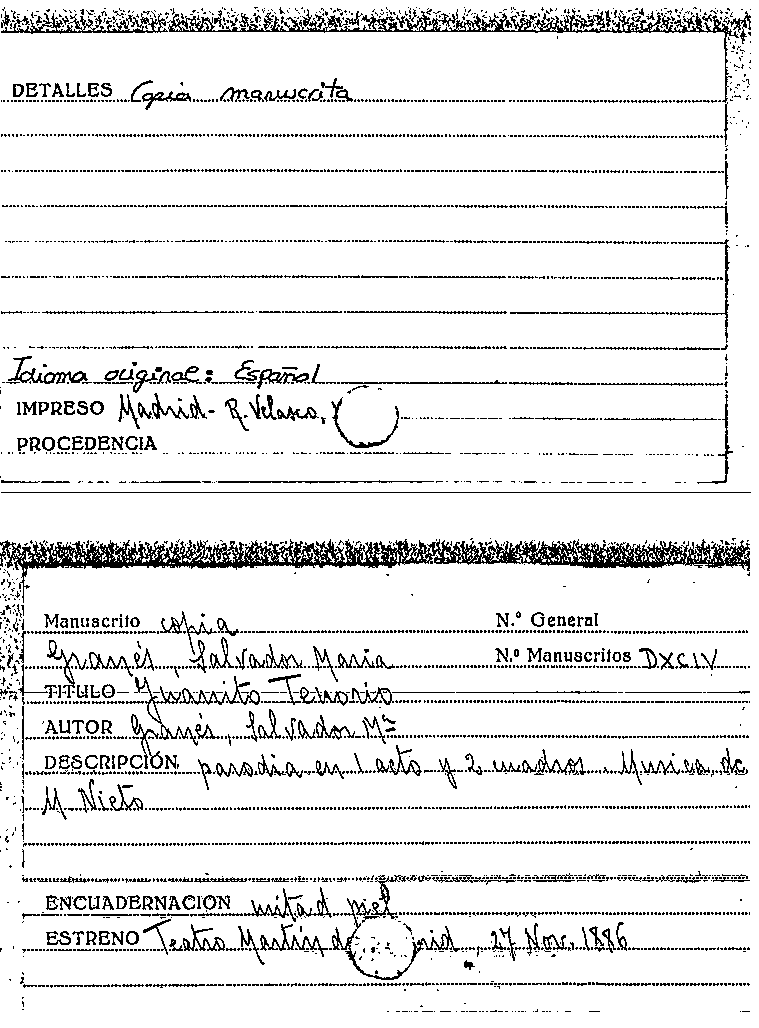 DETALLES Copia manuscrita
Idioma original: Español
IMPRESO Madrid - R. Velasco,
PROCEDENCIA
Manuscrito copia N.º General
Granés, Salvador Maria N.º Manuscritos DXCIV
TITULO Juanito Tenorio
AUTOR Granés, Salvador Mª
DESCRIPCIÓN parodia en 1 acto y 2 cuadros. Musica de
M Nieto
ENCUADERNACION mitad piel
ESTRENO Teatro Martín de , 27 Nov. 1886